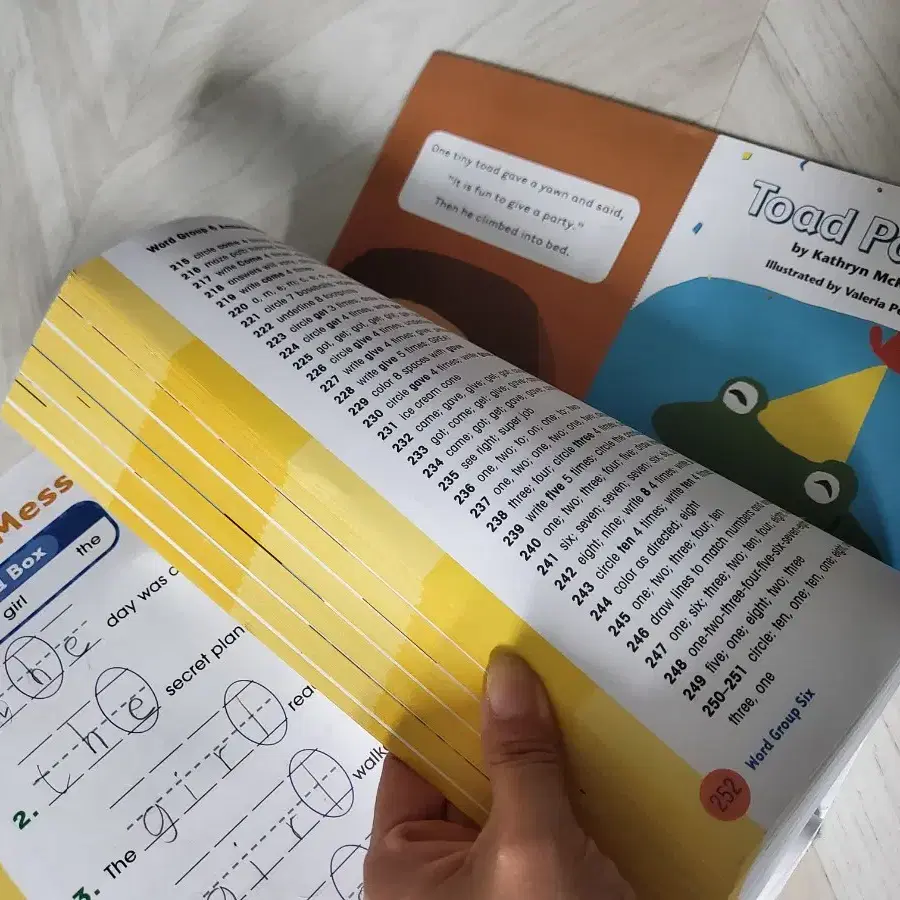 One tiny toad gave a yawn and said,
"It is fun to give a party."
Then he climbed into bed.
Toad
by Kathryn
Illustrated by Valeria
Word Group 6
215 circle come 4
216 maze path
217 write Come 4
218 answers will
219 write come 4 times
220 o, m, e; m, c, e;
221 circle 7 baseballs
222 underline 8
223 circle get 3 times;
224 circle get 4 times;
225 got; get; got; get; got;
226 circle give 4 times; under
227 write give 4 times; give;
228 write give 5 times;
229 color 8 spaces with gave
230 circle gave 4 times; write
231 ice cream cone
232 came; gave; give; get; got;
233 got; come; get; give; gave;
234 came; got; get; gave; give; come
235 see right; super job
236 one, two; to; on; one; to; two
237 one, two; one, two; one, two;
238 three; four; circle three 4 times;
239 write five 5 times; circle the
240 one; two; three; four; five;
241 six; seven; seven; seven; six;
242 eight; nine; write 8 4 times;
243 circle ten 4 times; write ten 4
244 color as directed; eight
245 one; two; three; four; ten
246 draw lines to match numbers and
247 one; six; three; two; ten; four; eight;
248 one-two-three-four-five-six-seven-
249 five; one; eight; two; three
250–251 circle: ten, one; ten, one; eight,
three, one
Word Group Six
252
Mess
Box
girl the
he day was
2. the secret plan
girl
3. The girl walk